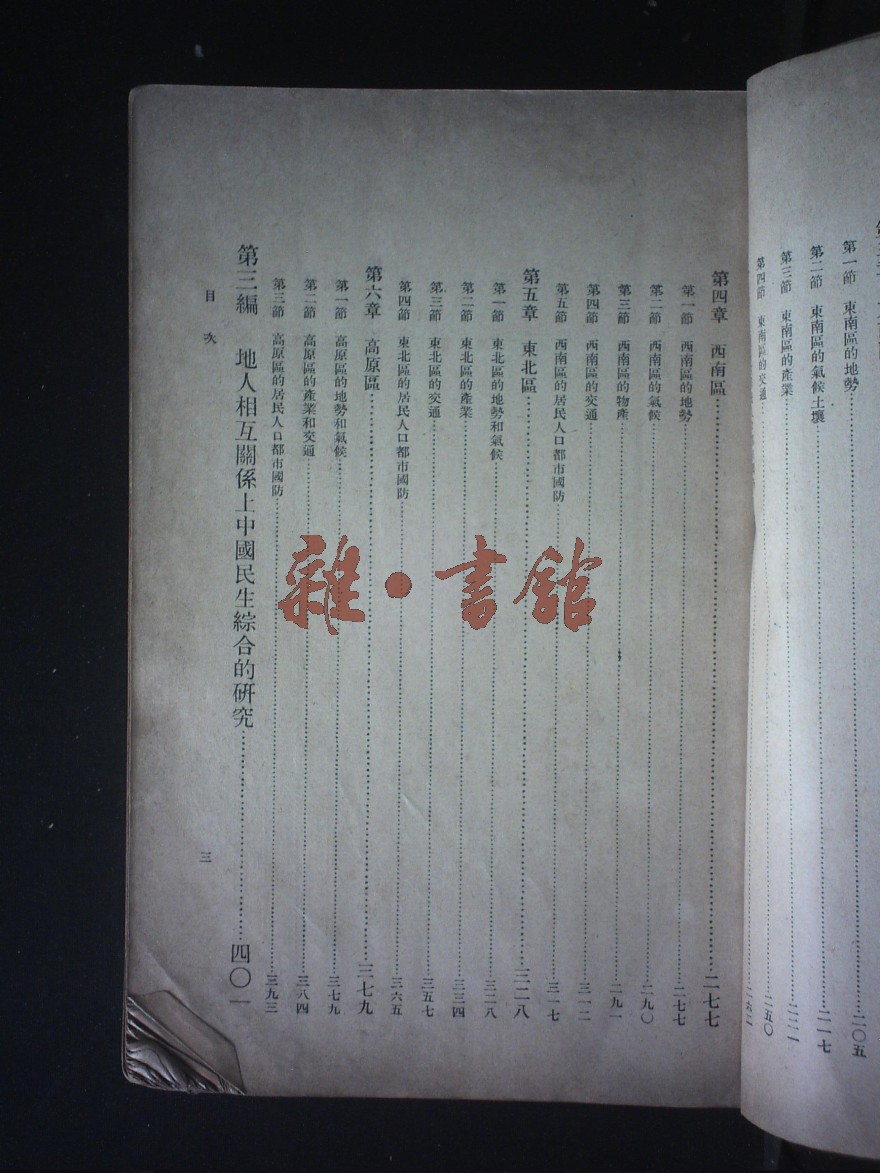 第一節 東南區的地勢 二〇五
第二節 東南區的氣候土壤 二一七
第三節 東南區的產業 二二一
第四節 東南區的交通 二五〇
二六二
第四章 西南區 二七七
第一節 西南區的地勢 二七七
第二節 西南區的氣候 二九〇
第三節 西南區的物產 二九一
第四節 西南區的交通 三一二
第五節 西南區的居民人口都市國防 三一七
第五章 東北區 三二八
第一節 東北區的地勢和氣候 三二八
第二節 東北區的產業 三三四
第三節 東北區的交通 三五七
第四節 東北區的居民人口都市國防 三六五
第六章 高原區 三七九
第一節 高原區的地勢和氣候 三七九
第二節 高原區的產業和交通 三八四
第三節 高原區的居民人口都市國防 三九三
第三編 地人相互關係上中國民生綜合的研究 四〇一
目次 三
雜·書館